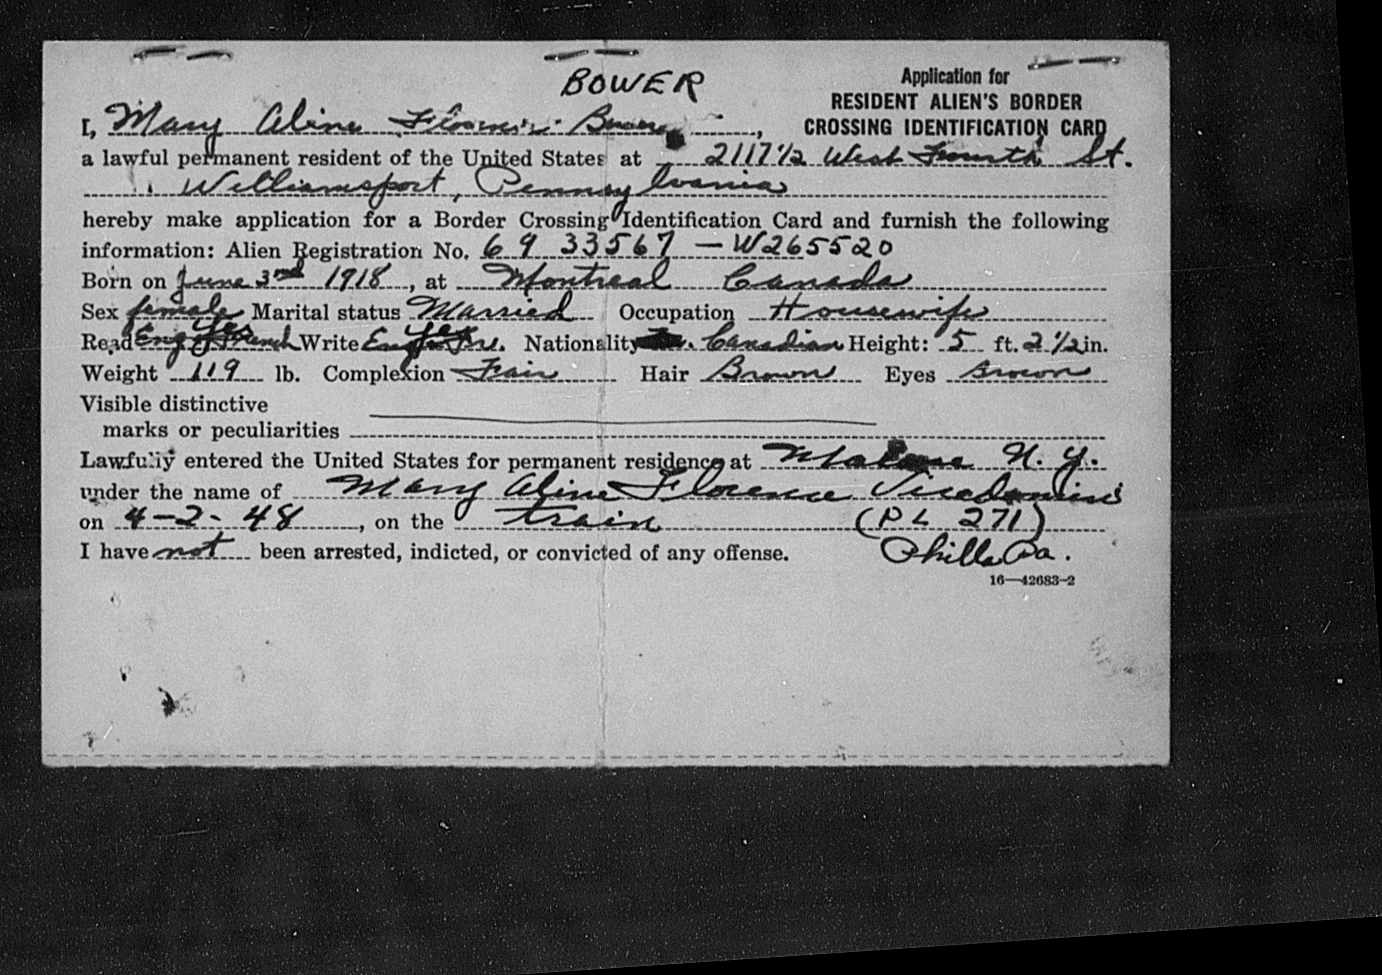 BOWER
Application for
RESIDENT ALIEN'S BORDER
CROSSING IDENTIFICATION CARD
I, Mary Aline Florence Bower,
a lawful permanent resident of the United States at 2117½ West Fourth St.
Williamsport, Pennsylvania
hereby make application for a Border Crossing Identification Card and furnish the following
information: Alien Registration No. 6 9 33567 — W265520
Born on June 3nd 1918, at Montreal Canada
Sex female Marital status Married Occupation Housewife
Read Eng French yes Write Eng Fre. yes Nationality Canadian Height: 5 ft. 2 ½ in.
Weight 119 lb. Complexion Fair Hair Brown Eyes Brown
Visible distinctive
marks or peculiarities
Lawfully entered the United States for permanent residence at Malone N. Y.
under the name of Mary Aline Florence
on 4-2-48, on the train (PL 271)
I have not been arrested, indicted, or convicted of any offense. Phila Pa.
16—42683-2